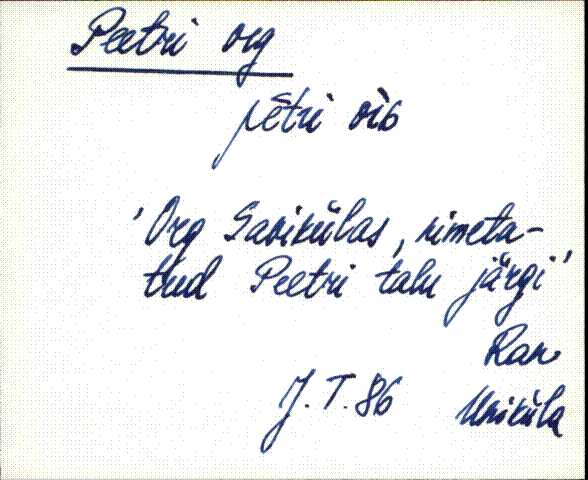 Peetri org
pētri oŕG
'Org Savikülas, nimeta-
tud Peetri talu järgi'
Ran
J. T. 86 Uniküla